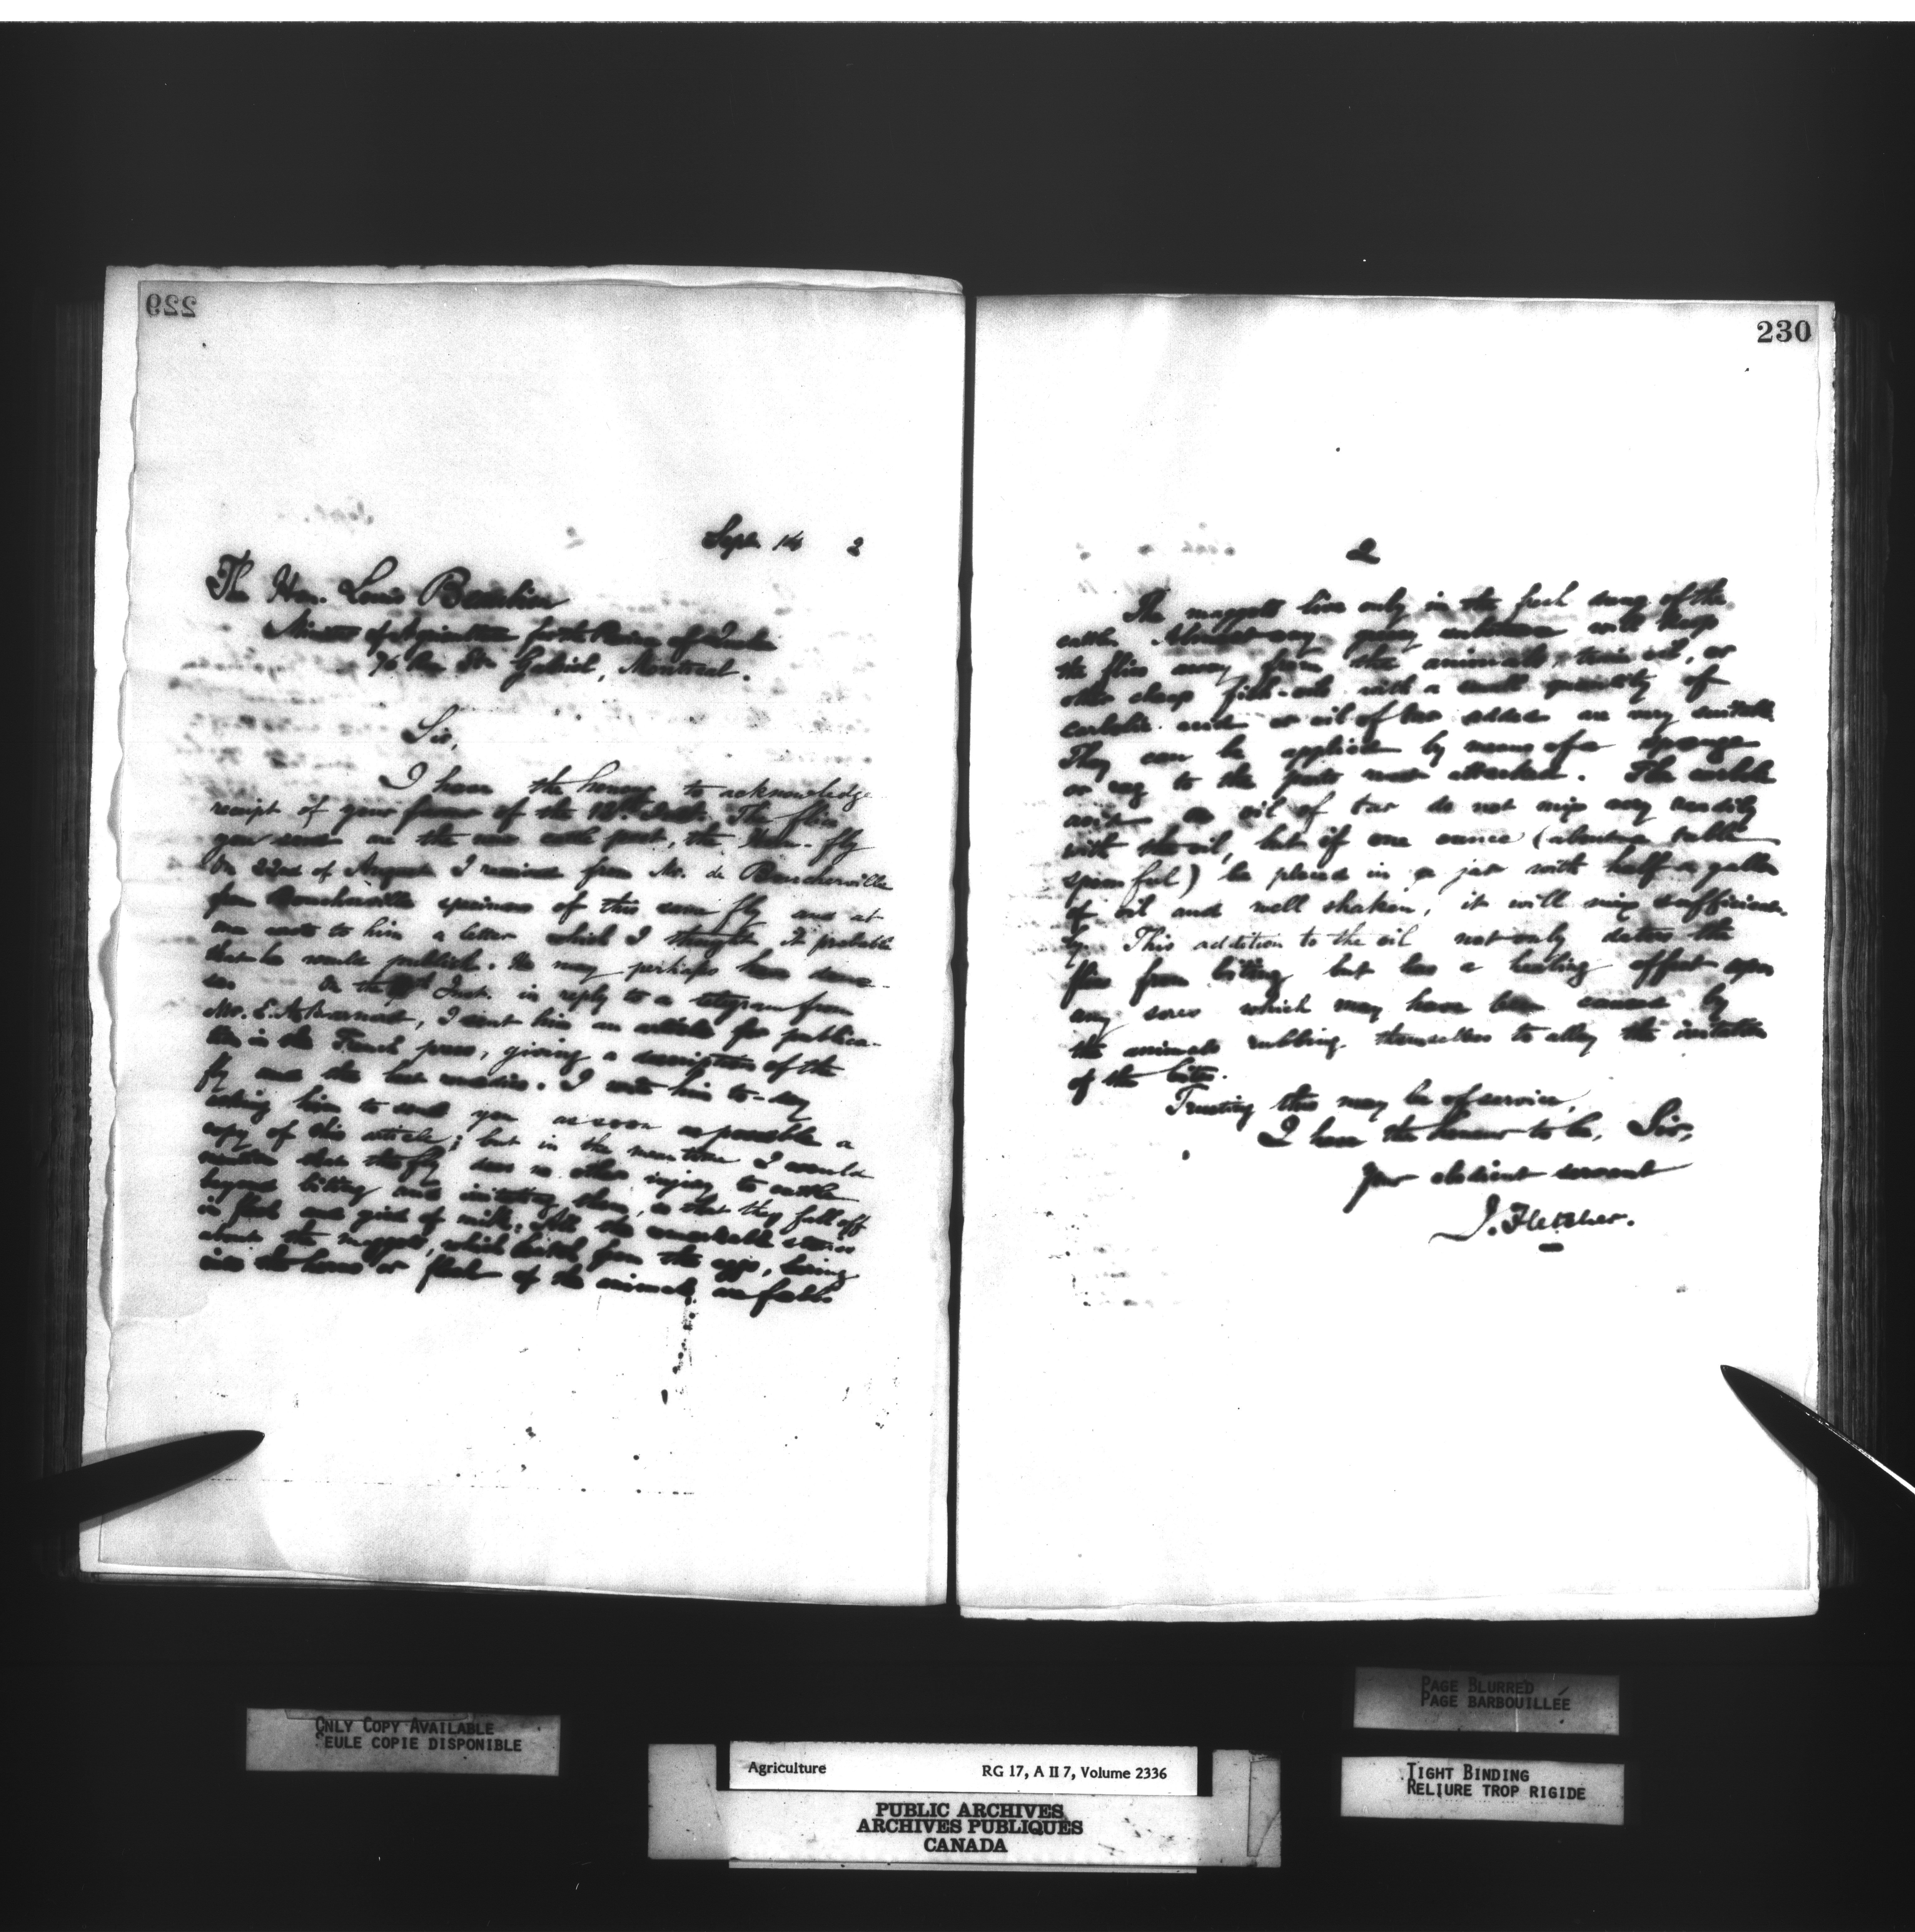 229
Sept. 14 2
The Hon. Louis Beaubien
Minister of Agriculture for the Province of Quebec
76 Rue St. Gabriel, Montreal.
Sir,
I have the honour to acknowledge
receipt of your favour of the Inst. The flies
you send are the new cattle pest, the Horn-fly
On 22nd of August I received from Mr. de Boucherville
from Boucherville specimens of this same fly and at
once wrote to him a letter which I thought it probable
that he would publish. He may perhaps have done
so. On the Inst. in reply to a telegram from
Mr. E. A. Barnard, I sent him an article for publica-
tion in the French press, giving a description of the
fly and the best remedies. I write him to-day
asking him to send you as soon as possible a
copy of this article; but in the meantime I would
that the fly does no other injury to cattle
beyond biting and irritating them, so that they fall off
in flesh and yield of milk. All the remarkable stories
about the maggots, which hatch from the eggs, boring
into the horns or flesh of the animals are false.
230
2
The maggots live only in the fresh dung of the
cattle. Almost any greasy substance will keep
the flies away from the animals, train oil, or
other cheap fish-oils with a small quantity of
carbolic acid or oil of tar added are very suitable
They can be applied by means of a sponge
or rag to the parts most attacked. The carbolic
acid or oil of tar do not mix very readily
with the oil, but if one ounce (about a table
spoonful) be placed in a jar with half a gallon
of oil and well shaken, it will mix sufficient-
ly. This addition to the oil not only deters the
flies from biting but has a healing effect upon
any sores which may have been caused by
the animals rubbing themselves to allay the irritation
of the bites.
Trusting this may be of service,
I have the honour to be, Sir,
Your obedient servant
J. Fletcher.
ONLY COPY AVAILABLE
SEULE COPIE DISPONIBLE
PAGE BLURRED
PAGE BARBOUILLÉE
Agriculture RG 17, A II 7, Volume 2336
TIGHT BINDING
RELIURE TROP RIGIDE
PUBLIC ARCHIVES
ARCHIVES PUBLIQUES
CANADA